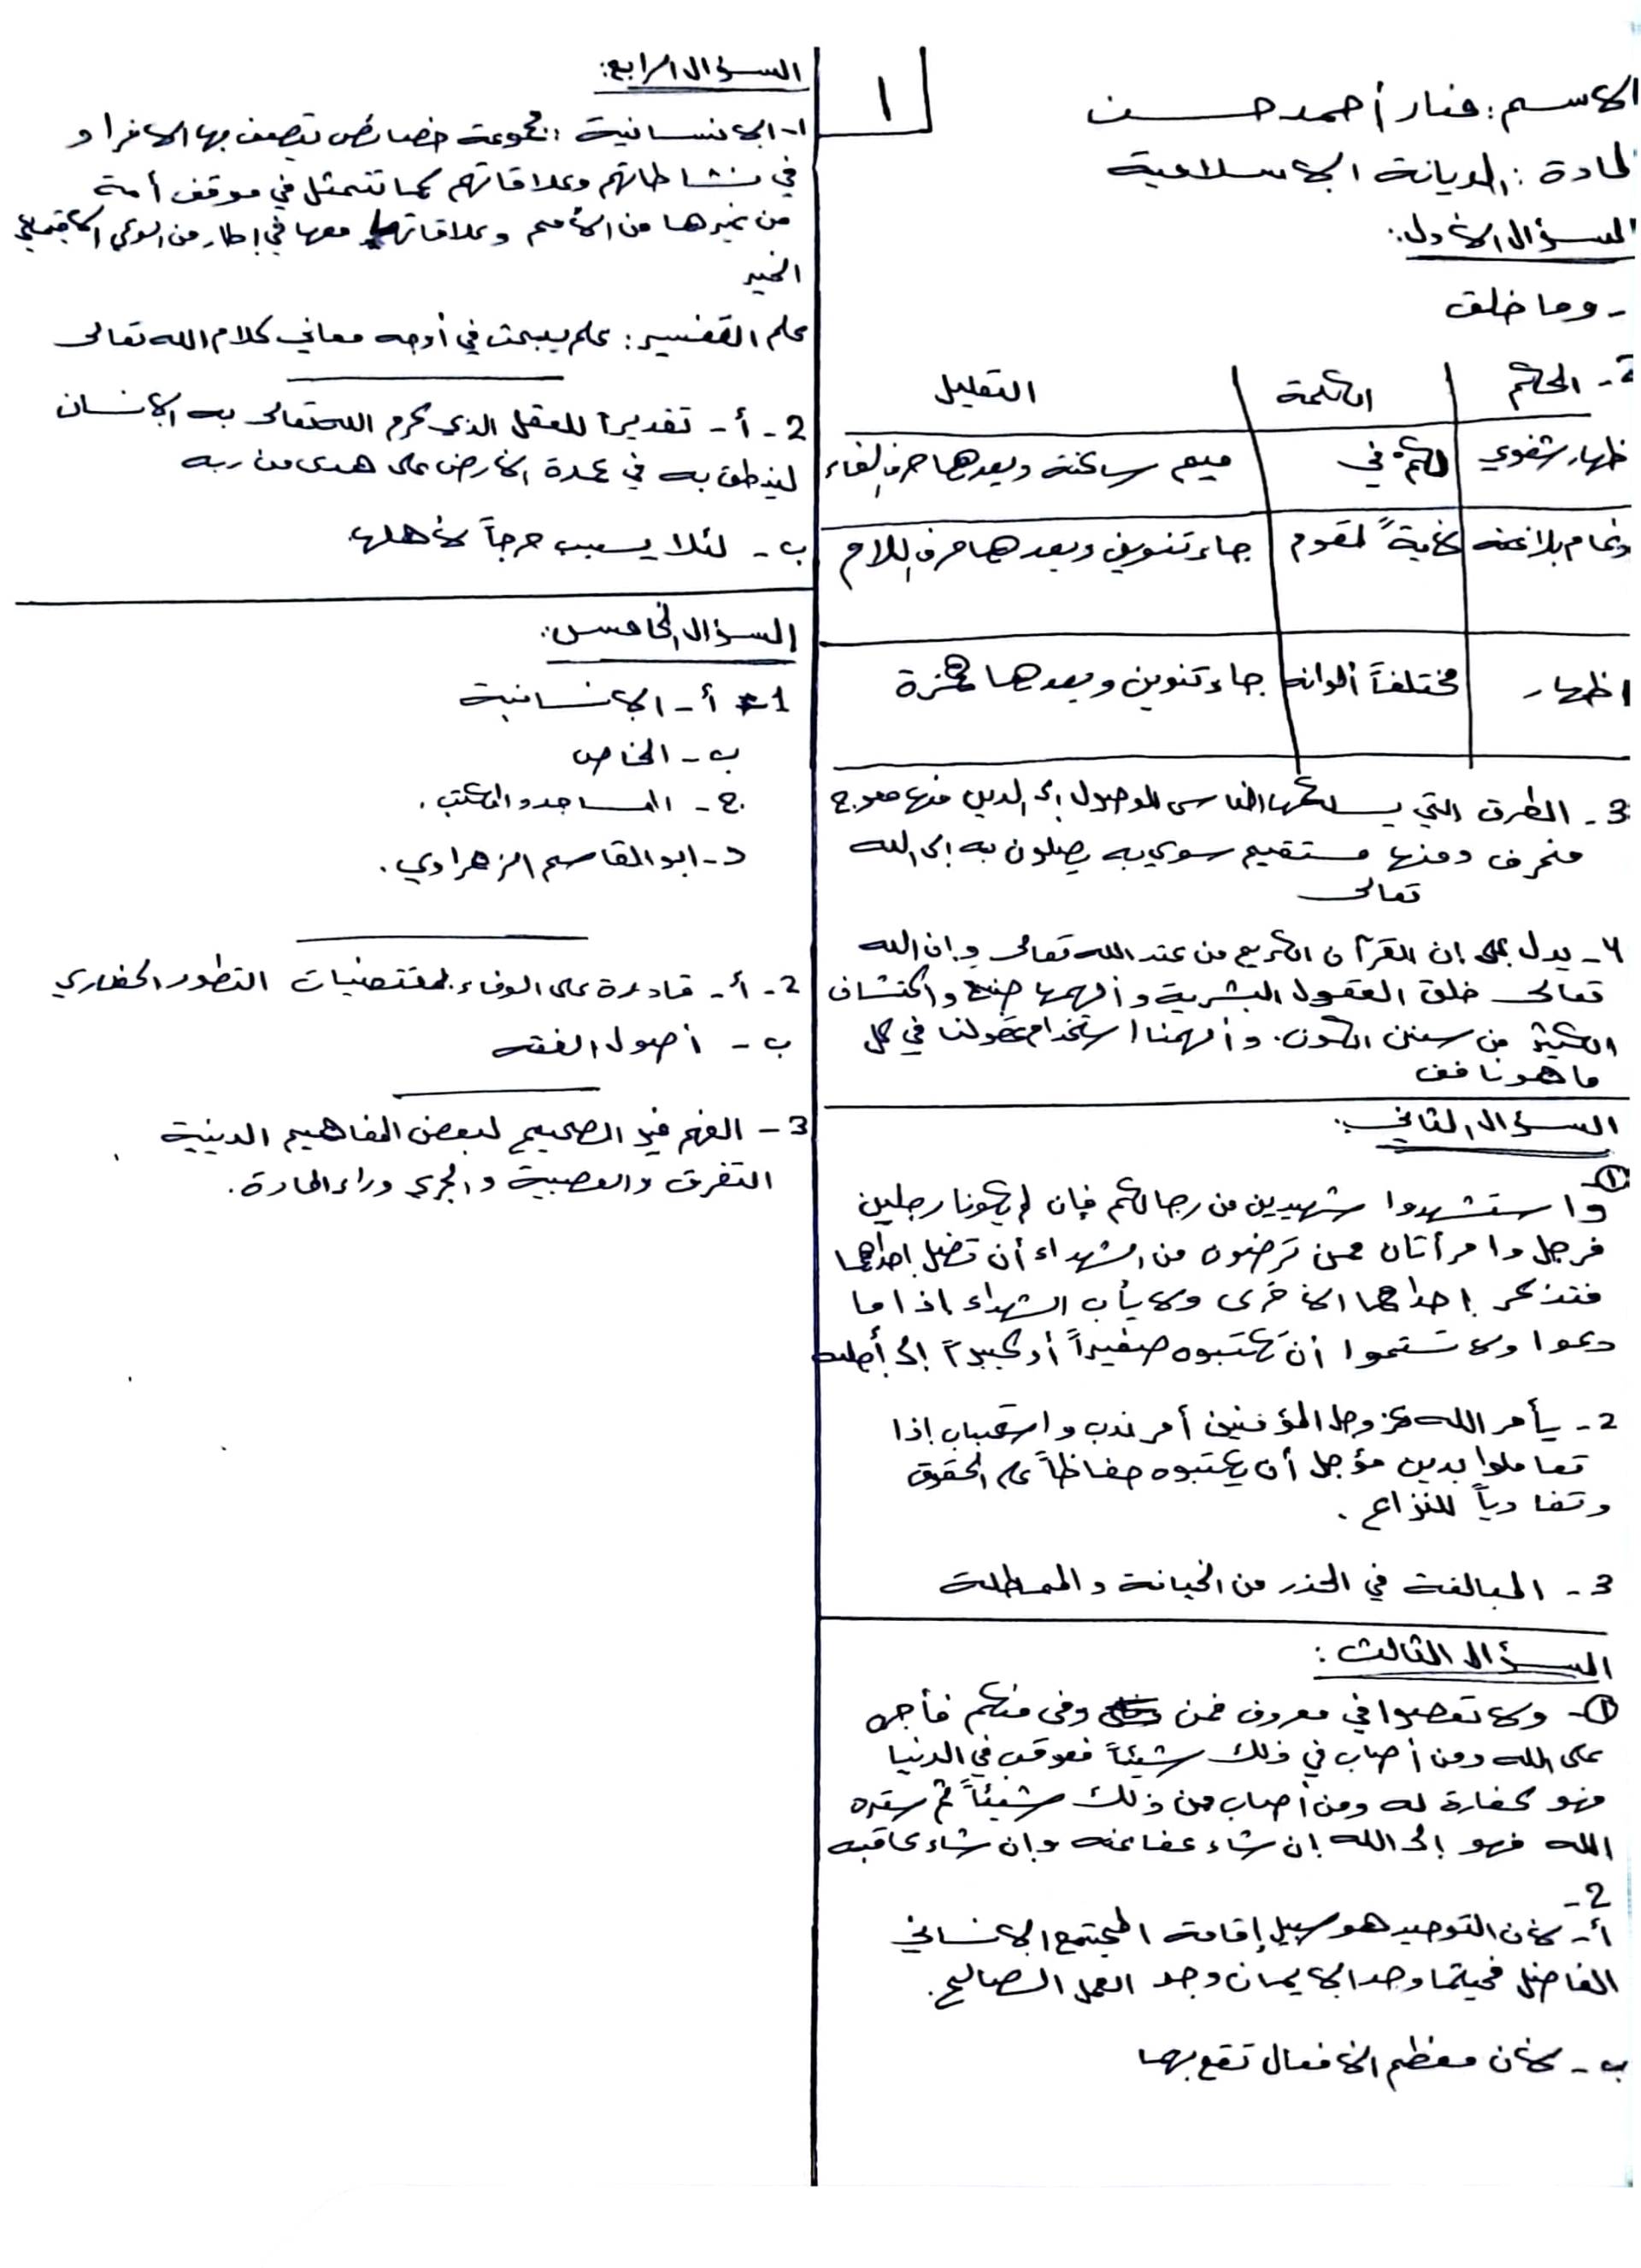 الاسم: منار أحمد حسن
لمادة: الديانة الاسلامية
1
السؤال الأول:
- وما خلق
2- الحكم | الكلمة | التعليل
ظهار شفوي | لكم في | ميم ساكنة وبعدها حرف الفاء
دغام بلا غنه | لآيةً لقوم | جاء تنوين وبعدها حرف اللام
اظهار | مختلفاً ألوانه | جاء تنوين وبعدها همزة
3- الطرق التي يسلكها الناس للوصول إلى الدين منها معوج
منحرف ومنها مستقيم سوي به يصلون به إلى الله
تعالى
4- يدل على إن القرآن الكريم من عند الله تعالى وإن الله
تعالى خلق العقول البشرية وألهمها صنع واكتشاف
الكثير من سنن الكون. وألهمنا استخدام عقولنا في كل
ما هو نافف
السؤال الثاني:
1-
واستشهدوا شهيدين من رجالكم فإن لم يكونا رجلين
فرجل وامرأتان ممن ترضون من الشهداء أن تضل احداهما
فتذكر إحداهما الأخرى ولا يأب الشهداء إذا ما
دعوا ولا تسئموا أن تكتبوه صغيراً أو كبيراً إلى أجله
2- يأمر الله عز وجل المؤمنين أمر ندب واستحباب إذا
تعاملوا بدين مؤجل أن يكتبوه حفاظاً على الحقوق
وتفادياً للنزاع.
3- المبالغة في الحذر من الخيانة والمماطلة
السؤال الثالث:
1- ولا تعصوا في معروف فمن وفى منكم فأجره
على الله ومن أصاب في ذلك شيئاً فعوقب في الدنيا
فهو كفارة له ومن أصاب من ذلك شيئاً ثم ستره
الله فهو إلى الله إن شاء عفا عنه وإن شاء عاقبه
2-
أ- لأن التوحيد هو سبيل إقامة المجتمع الانساني
الفاضل فحيثما وجد الايمان وجد العمل الصالح.
ب- لأن معظم الأفعال تقع بهما
السؤال الرابع:
1- الانسانية: مجموعة خصائص تتصف بها الافراد
في نشاطاتهم وعلاقاتهم كما تتمثل في موقف أمة
من غيرها من الأمم وعلاقاتها معها في إطار من الوعي الاجتماعي
الخير
علم التفسير: علم يبحث في أوجه معاني كلام الله تعالى
2- أ- تقديراً للعقل الذي كرم الله تعالى به الإنسان
لينطلق به في عمارة الأرض على هدى من ربه
ب- لئلا يسبب حرجاً لأهلها
السؤال الخامس:
1- أ- الانسانية
ب- الخاص
ج- المساجد والمكتب.
د- ابو القاسم الزهراوي.
2- أ- قادرة على الوفاء بمقتضيات التطور الحضاري
ب- أصول الفقه
3- الفهم غير الصحيح لبعض المفاهيم الدينية
التفرق والعصبية والجري وراء المادة.